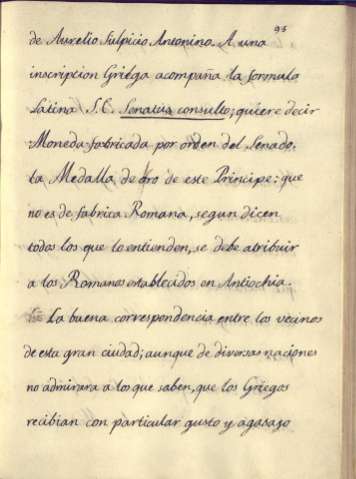 93
de Aurelio Sulpicio Antonino. A una
inscription Griega acompaña la formula
Latina S.C. Senatus consulto; quiere decir
Moneda fabricada por orden del Senado.
La Medalla de oro de este Principe: que
no es de fabrica Romana, segun dicen
todos los que lo entienden, se debe atribuir
a los Romanos establecidos en Antiochia.
La buena correspondencia entre los vecinos
de esta gran ciudad; aunque de diversas naciones
no admirara a los que saben, que los Griegos
recibian con particular gusto y agasajo